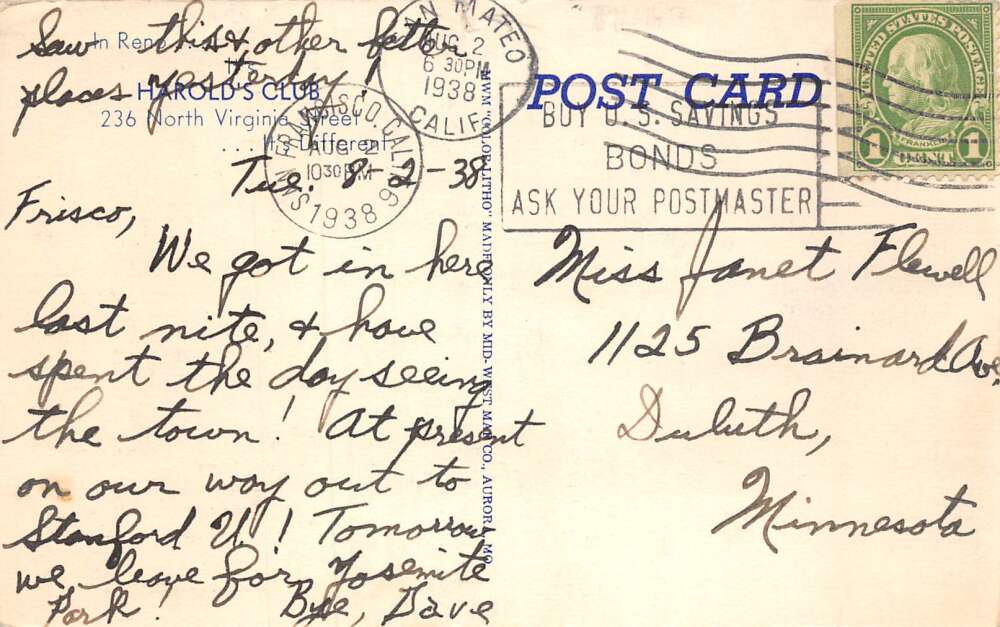 Saw this & other
places yesterday!
In Reno
HAROLD'S CLUB
236 North Virginia Street
. . . It's Different
Tue. 8-2-38
Frisco,
We got in here
last nite, & have
spent the day seeing
the town! At present
on our way out to
Stanford U! Tomorrow
we leave for Yosemite
Park! Bye, Dave
SAN MATEO
AUG 2
6 30PM
1938
CALIF.
SAN FRANCISCO, CALIF.
AUG 2
1030 PM
1938
MWM "COLOR-LITHO" MADE ONLY BY MID-WEST MAP CO., AURORA, MO.
POST CARD
BUY U.S. SAVINGS
BONDS
ASK YOUR POSTMASTER
UNITED STATES POSTAGE
FRANKLIN
1 1
Miss Janet Flewell
1125 Brainard Ave
Duluth,
Minnesota